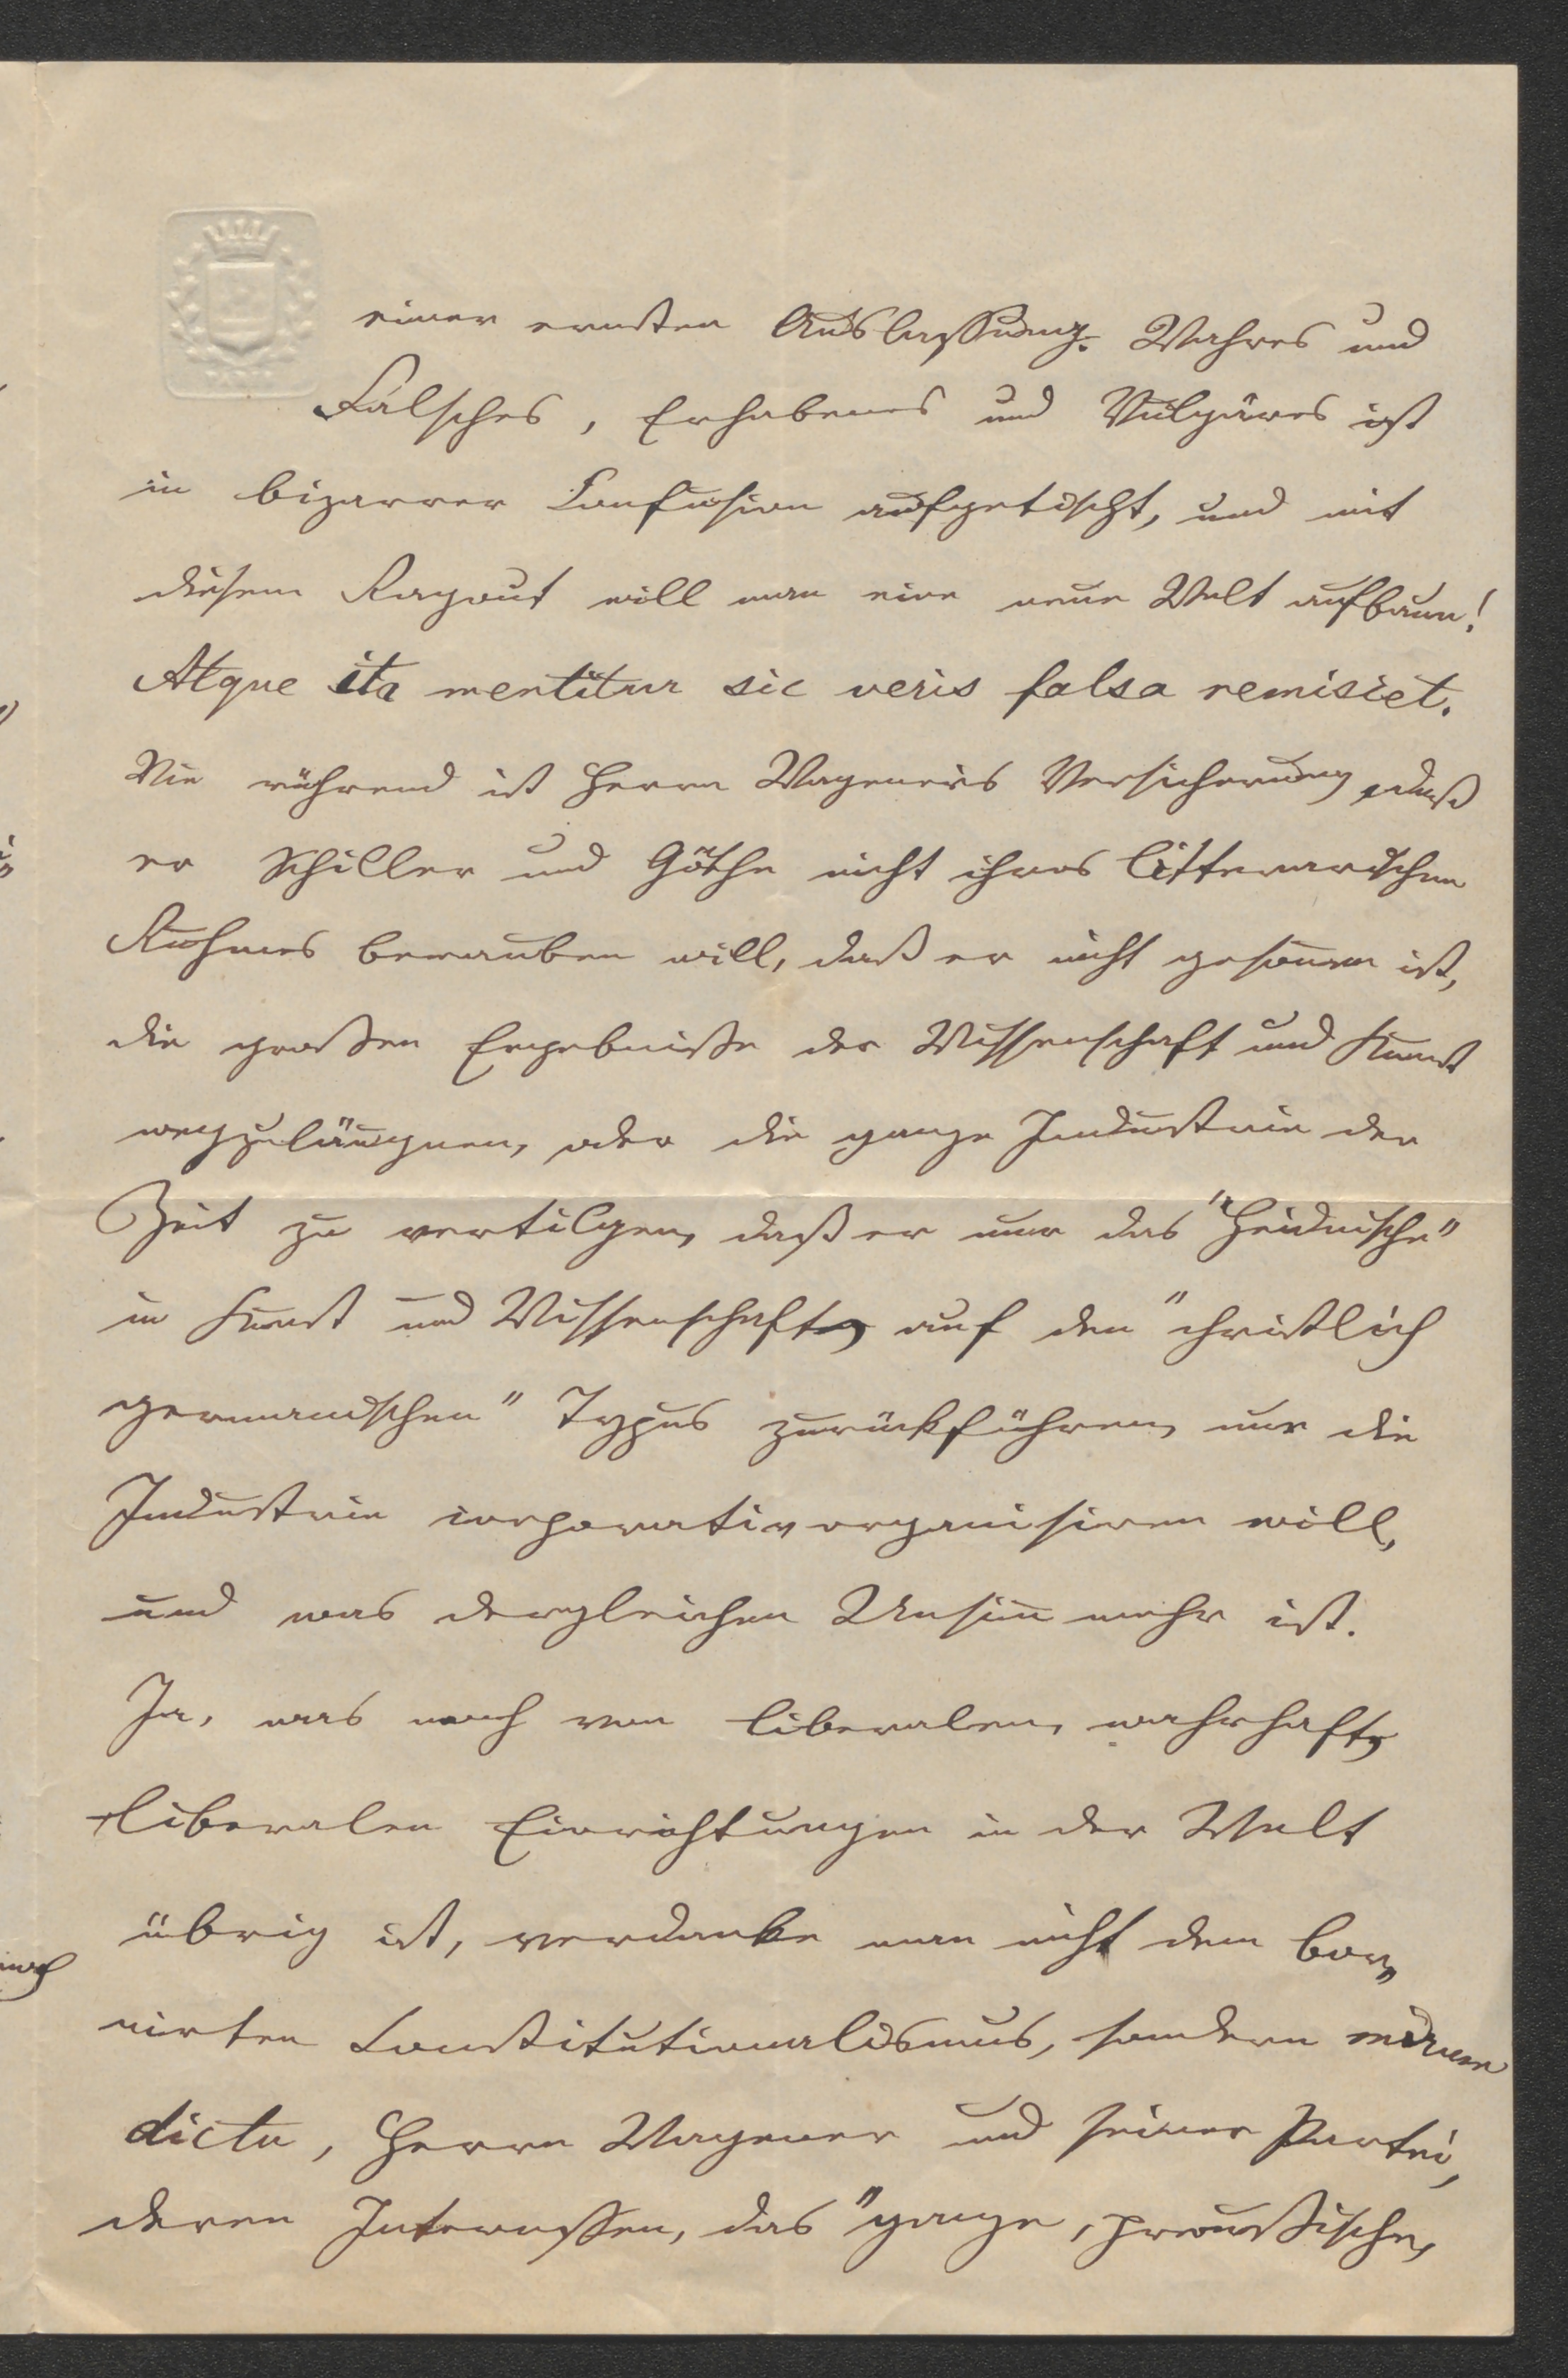 einer ernsten Auslassung. Wahres und
Falsches, Erhabenes und Vulgäres ist
in bizarrer Confusion aufgetischt, und mit
diesem Ragout will man eine neue Welt aufbaun!
Atque ita mentitur sic veris falsa remisiet.
Wie rührend ist Herrn Wagener's Versicherung, daß
er Schiller und Göthe nicht ihres litterarischen
Ruhmes berauben will, daß er nicht gesonnen ist,
die großen Ergebniße der Wissenschaft und Kunst
wegzuläugnen, oder die ganze Industrie der
Zeit zu vertilgen, daß er nur das "Heidnische"
in Kunst und Wissenschaft, auf den "christlich
germanischen" Typus zurückführen, nur die
Industrie corporativ organisiren will,
und was dergleichen Unsinn mehr ist.
Ja, was noch von liberalen, wahrhaft
liberalen Einrichtungen in der Welt
übrig ist, verdanke man nicht dem bor-
nirten Constitutionalismus, sondern mirum
dictu, Herrn Wagener und seiner Partei,
deren Interessen, das "ganze, preußische,